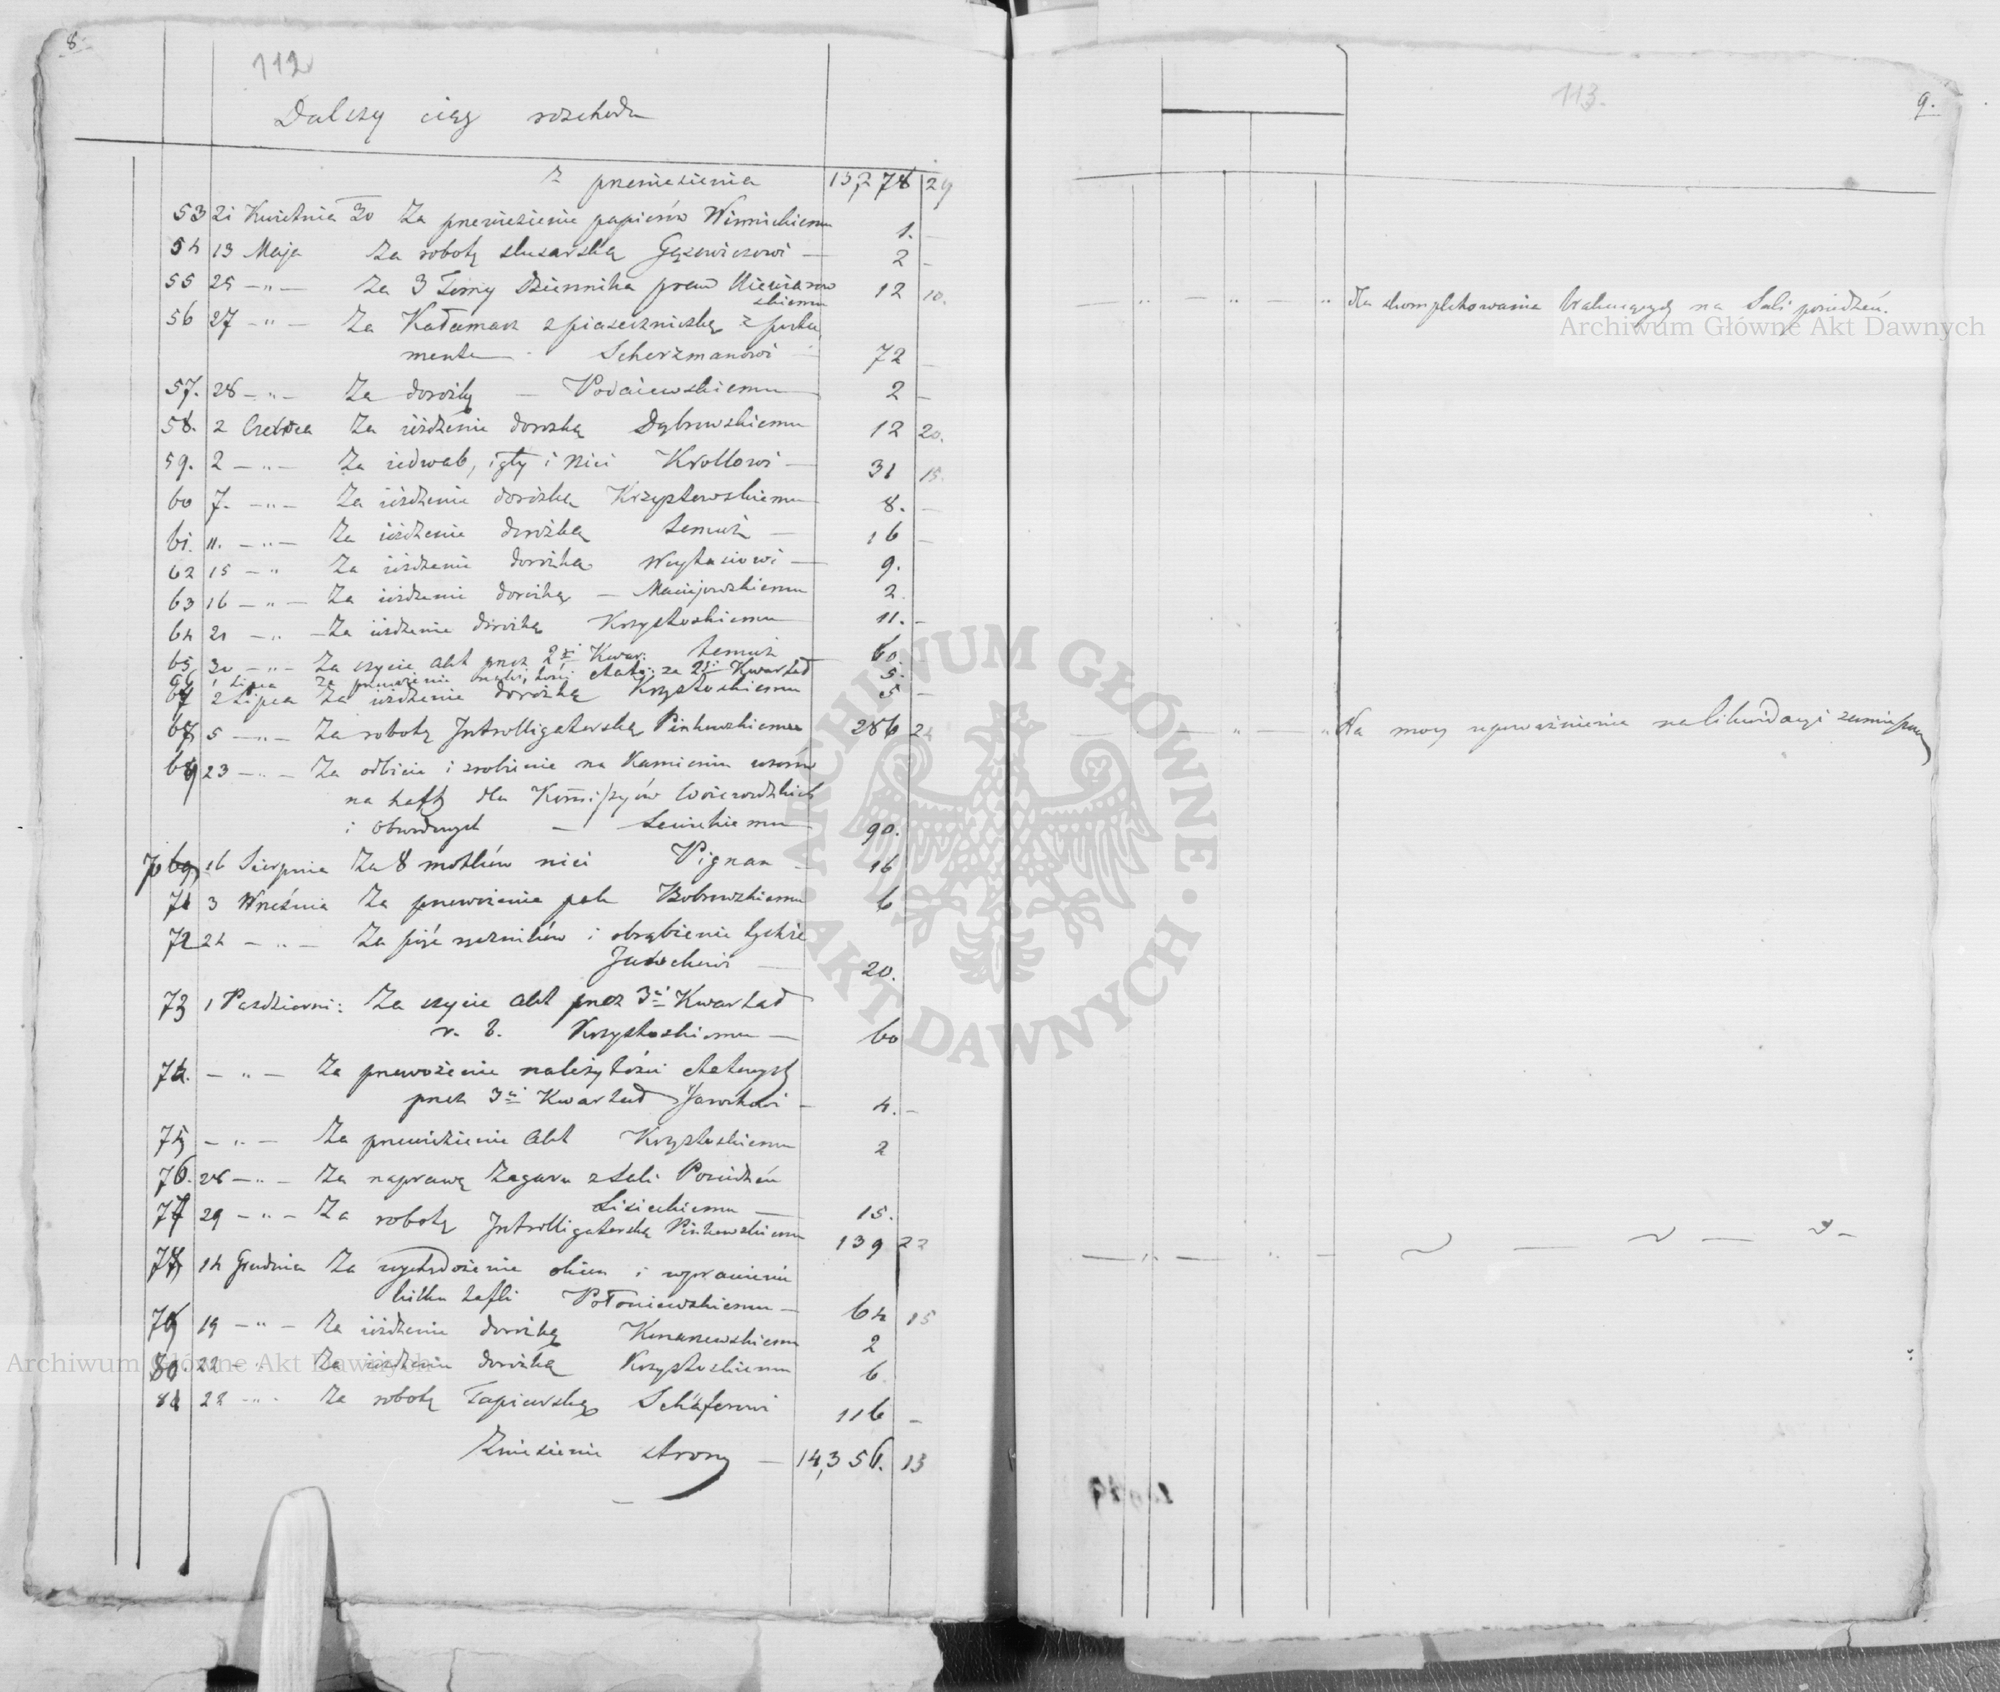 8.
112
Dalszy ciąg rozchodu
Z przeniesienia 13,278 29
53 21 Kwietnia 30 Za przeniesienie papierów Winnickiemu 1. —
54 13 Maja Za robotę slusarską Gązewiczowi — 2 —
55 25 — „ — Za 3 Tomy Dziennika praw 12 10.
skiemu
56 27 — „ — Za Kałamarz z piaseczniczką z postu
mentu Scherzmanowi — 72 —
57. 28 — „ — Za dorożkę — Podaiewskiemu 2 —
58. 2 Czerwca Za ieżdżenie dorożką Dąbrowskiemu 12 20.
59. 2 — „ — Za iedwab, igły i Nici Krollowi — 31 15.
60 7. — „ — Za ieżdżenie dorożką Krzyptowskiemu 8. —
61. 11. — „ — Za ieżdżenie dorożką temuż — 16 —
62 15 — „ Za ieżdżenie dorożką Woytasiowi — 9.
63 16 — „ — Za ieżdżenie dorożką — Maciejowskiemu 2.
64 21 — „ — Za ieżdżenie dorożką Krzystoskiemu 11. —
65 30 — „ — Za szycie Akt przez 2gi Kwar: temuż 60.
66 1 Lipca Za przewożenie należytości etatu: za 2gi Kwartał 5.
67 2 Lipca Za ieżdżenie dorożką Krzystoskiemu 5 —
68 5 — „ — Za robotę Introlligatorską Pińkowskiemu 286 24
69 23 — „ — Za odbicie i zrobienie na Kamieniu wzorów
na hafty dla Kommissyów Woiewodzkich
i Obwodowych — 90.
70 16 Sierpnia Za 8 motków nici Pignan — 16
71 3 Września Za przewożenie pak Bobrowskiemu 6
72 24 — „ — Za ręczników i obrąbienie tychże
20.
73 1 Pazdzierni: Za szycie Akt przez 3ci Kwartał
r. b. Krzystoskiemu — 60
74. — „ — Za przewożenie należytości etatowych
przez 3ci Kwartał Jarockowi — 4. —
75 — „ — Za przewiezienie Akt Krzystoskiemu 2
76. 28 — „ — Za naprawę Zegaru z Sali Posiedzeń
Lisieckiemu — 15.
77 29 — „ — Za robotę Introlligatorską Pińkowskiemu 139 22
78 14 Grudnia Za wyświdrożenie okien i wprawienie
kilku tafli Połoniewskiemu — 64 15
79 19 — „ — Za ieżdżenie dorożką Kunanewskiemu 2
80. 22 — „ — Za ieżdżenie dorożką Krzystoskiemu 6.
81 22 — „ — Za robotę Tapicerską Schäferowi 116 —
Zniesienie strony — 14,356. 13
113.
9.
— „ — „ — „ Dla skompletowania brakujących na Sali posiedzeń.
— „ — „ Na mocy upoważnienia na likwidacyi zamieszczon
Archiwum Główne Akt Dawnych
ARCHIWUM GŁÓWNE · AKT DAWNYCH ·
Archiwum Główne Akt Dawnych